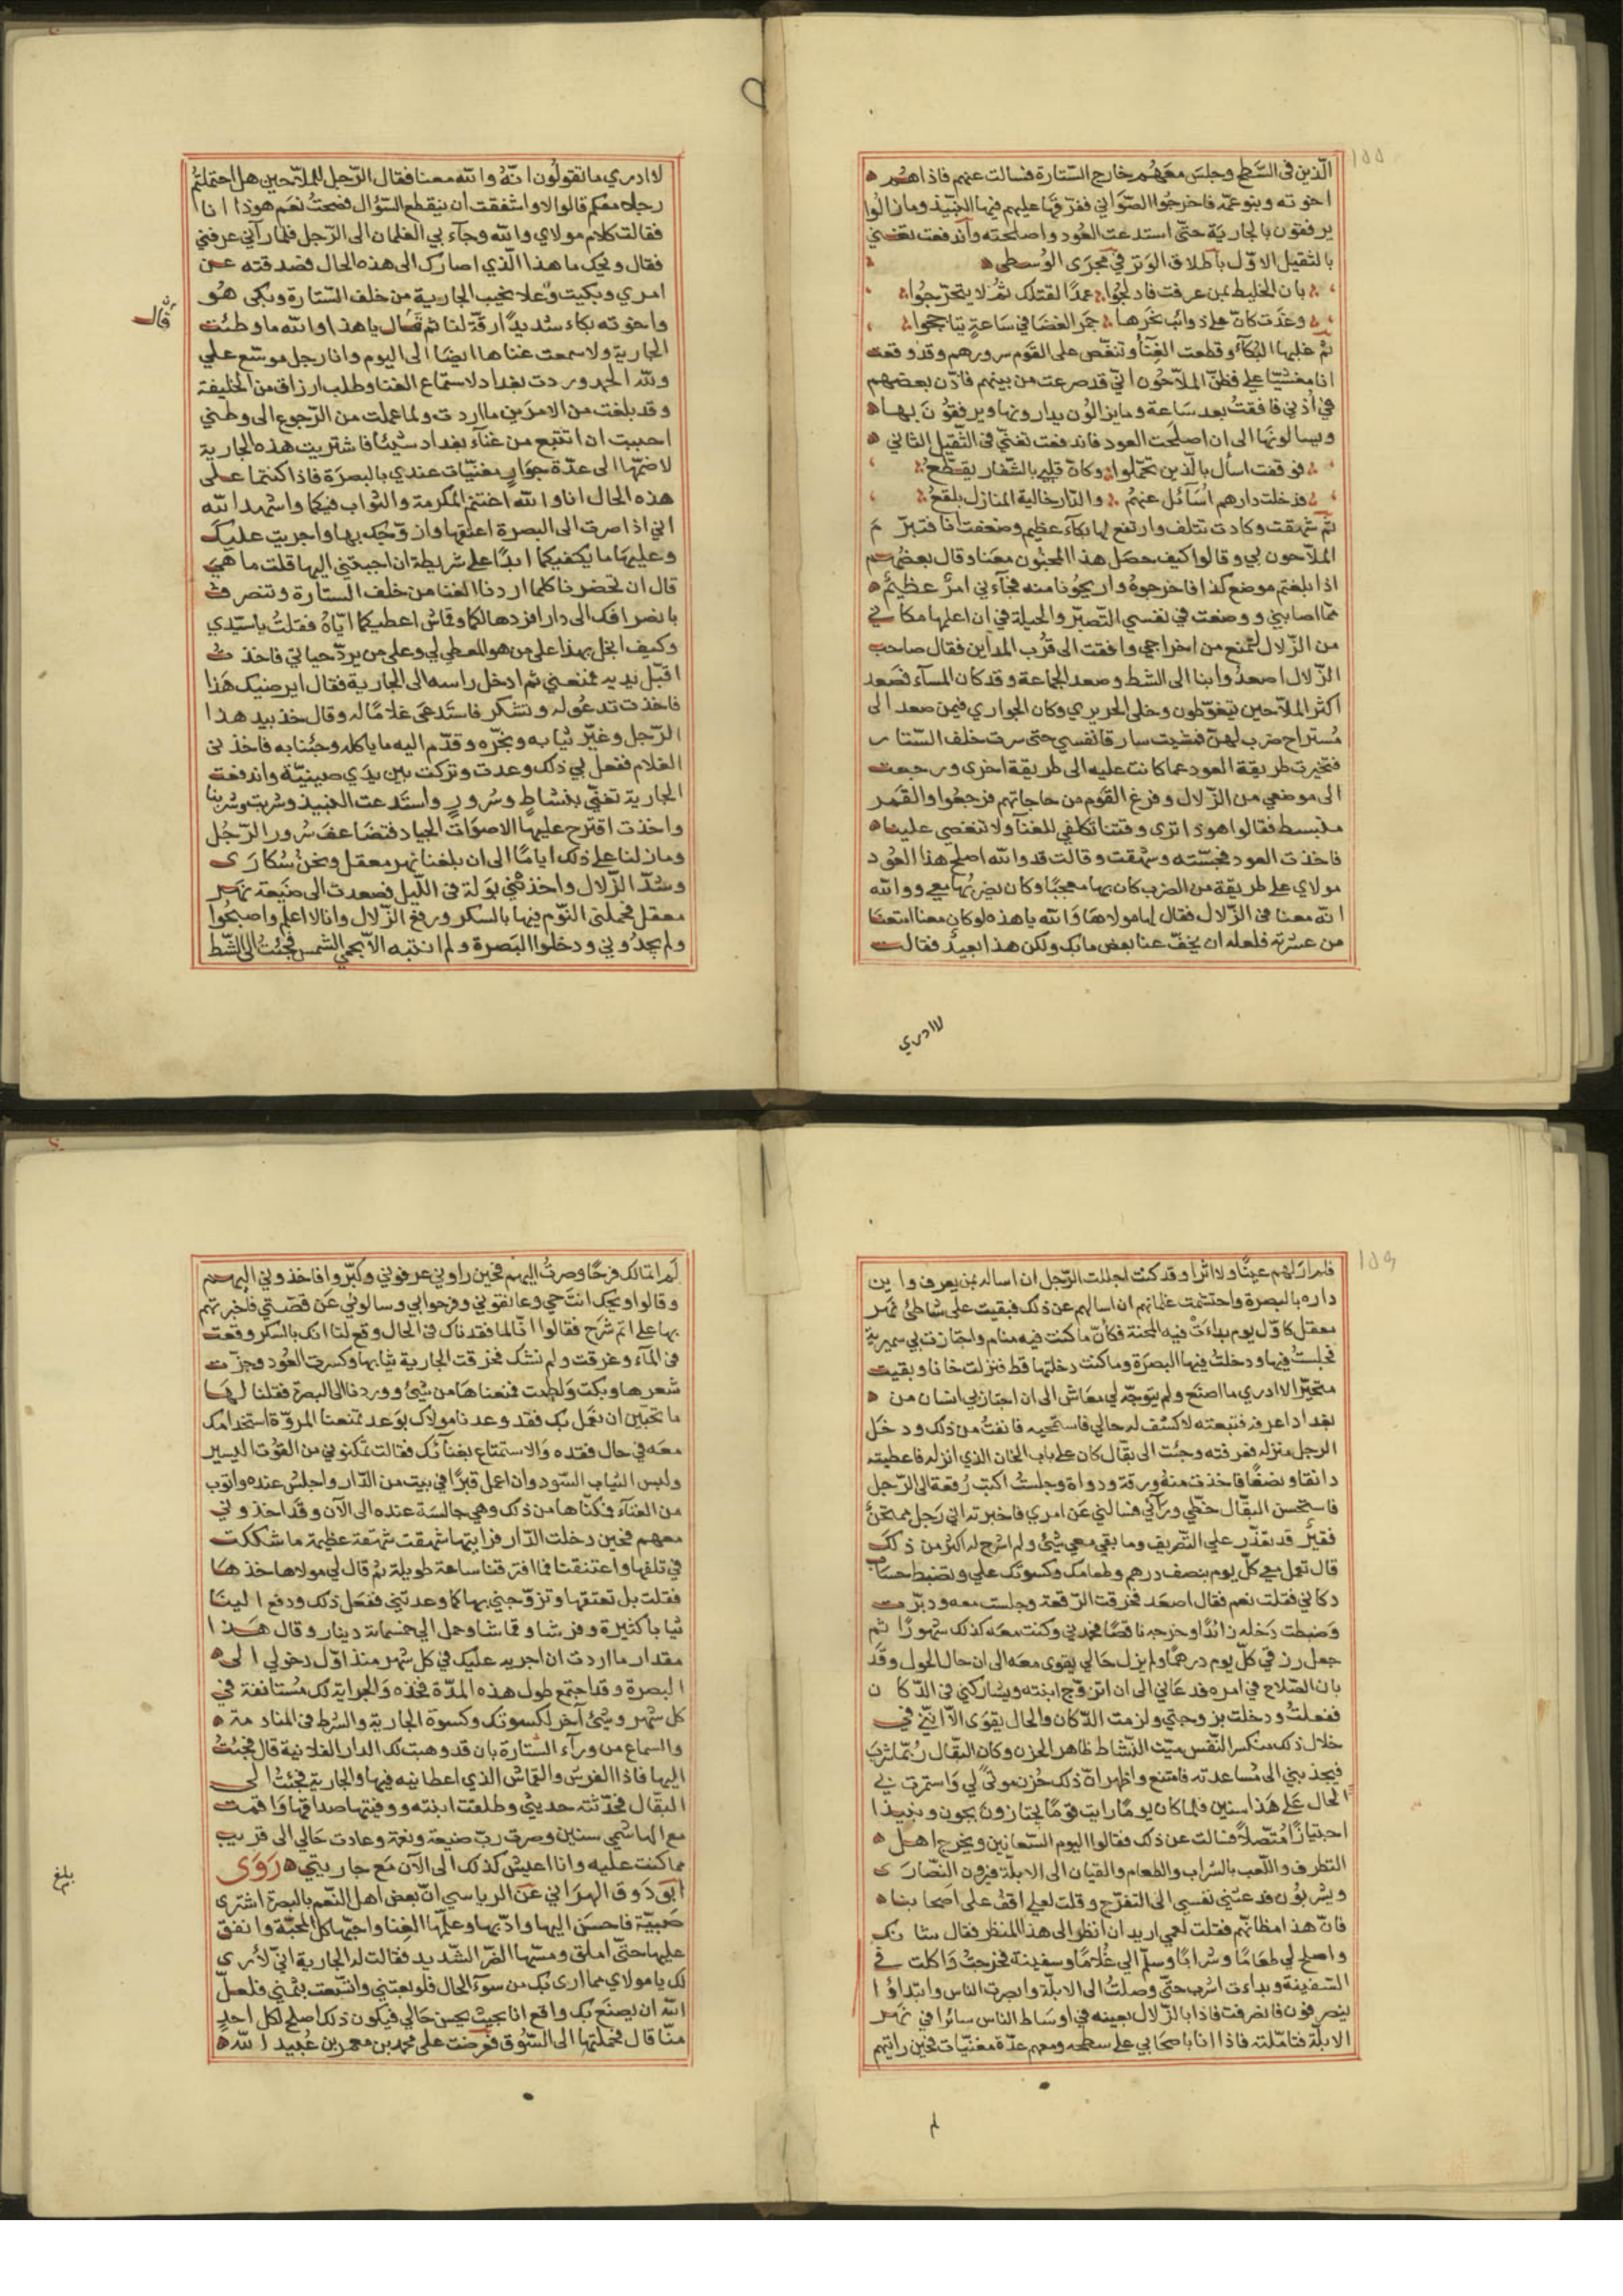 ١٥٥
الّذين في السّطح وجلسَ معهُم خارج السّتارة فسالت عنهم فاذا هُم
اخوته وبنو عمّه فاخرجُوا الصّوَاني ففرّقوها عليهم فيها النبيذ وما زالوا
يرفقون بالجارية حتّى استدعت العُود واصلحته واندفعت تغني
بالثقيل الاوّل باطلاق الوَتر في مجرَى الوُسطى
بان الخليط بمن عرفت فادلجوا عمدًا لقتلك ثمّ لا يتحرّجوا
وغدَت كانّ على ذوائب نحرها جمر الغضا في ساعةٍ يتاججوا
ثمّ غلبها البُكآء وقطعت الغنآ وتنغّص على القوم سرورهم وقد وقعت
انا مغشيّا عليّ فظنّ الملّاحُون انّي قد صرعت من بينهم فاذّن بعضهم
في أذني فافقتُ بعد سَاعة وما يزالوُن يدارونها ويرفقوُنَ بها
ويسالونَها الى ان اصلحَت العود فاندفعت تغنّي في الثّقيل الثاني
فوقفت اسأل بالّذين تحمّلوا وكانّ قلبي بالشّفار يقطّعُ
فدخلت دارهم أسَآئل عنهُم والدّار خالية المنازل بلقعُ
ثمّ شهقت وكادت تتلف وارتفع لها بكآء عظيم وضعفت انا فتبرّم
الملّاحون بي وقالوا كيف حصَل هذا المجنُون معَنا وقال بعضهُم
اذا بلغتم موضع كذا فاخرجوهُ واريحُونا منه فجآءني امرٌ عظيمٌ
ممّا اصابني ووضعت في نفسي التّصبّر والحيلة في ان اعلمها مكاني
من الزّلال لتمنع من اخراجي وافقت الى قُرب المداين فقال صاحب
الزّلال اصعدُوا بنا الى الشط وصعد الجماعة وقد كان المسآء فصَعد
اكثر الملّاحين يتغوّطون وخلى الحريري وكان الجواري فيمن صعد الى
مُستراح ضرب لهنّ فمشيت سارقا نفسي حتى سرت خلف السّتار
فتغيرت طريقة العود عما كانت عليه الى طريقة اخرى ورجعت
الى موضعي من الزّلال وفرغ القوم من حاجاتهم فرجعُوا والقمر
منبسط فقالوا هوذا ترى وقتنا فتكلفي للغنآ ولا تنغصي علينا
فاخذت العود فجسّته وشهقت وقالت قد والله اصلح هذا العُود
مولاي على طريقة من الضرب كان بها معجبًا وكان يضربُها معي ووالله
انّه معنا في الزّلال فقال لها مولاهَا وَالله يا هذه لو كان معنا امتنعنا
من عشرته فلعله ان يخفّ عنا بعض ما بك ولكن هذا بعيدٌ فقالت
لا ادري
لا ادري ما تقولُون انّهُ والله معنا فقال الرّجل للملّاحين هل احتملتمُ
رجلا معكم قالوا لا واشفقت ان ينقطع السّؤال فصحتُ نعَم هوذا انا
فقالت كلام مولاي والله وجآء بي الغلمان الى الرّجل فلما رآني عرفني
فقال ويحك ما هذا الّذي اصارك الى هذه الحال فصدقته عن
امري وبكيت وعلا نحيب الجارية من خلف السّتارة وبكى هُو
واخوته بكاء شديدًا رقّة لنا ثم قَال يا هذا والله ما وطئت
قَال
الجارية ولا سمعت غناها ايضًا الى اليوم وانا رجل موسّع علي
وللّه الحمد وردت بغداد لاستماع الغنا وطلب ارزاق من الخليفة
وقد بلغت من الامرَين ما اردت ولما عملت من الرّجوع الى وطني
احببت ان اتتبع من غنآء بغداد شيئًا فاشتريت هذه الجارية
لاضمّها الى عدّة جوَارٍ مغنّيات عندي بالبصرَة فاذا كنتما على
هذه الحال انا والله اغتنم المكرمة والثواب فيكما واشهد الله
انّي اذا صرت الى البصرة اعتقها وازوّجك بها واجريت عليك
وعليها ما يكفيكما ابدًا على شريطة ان اجبتني اليها قلت ما هي
قال ان تحضرنا كلما اردنا الغنا من خلف الستارة وتنصرف
بانصرافك الى دار افردها لكما وقماش اعطيكما ايّاهُ فقلتُ يا سيّدي
وكيف ابخل بهذا على من هو المعطي لي وعلى من يردّ حياتي فاخذت
اقبّل يديه فمنعني ثم ادخل راسه الى الجارية فقال ايرضيك هَذا
فاخذت تدعُو له وتشكر فاستَدعَى غلامًا له وقال خذ بيد هذا
الرّجل وغيّر ثيابه وبخّره وقدّم اليه ما ياكله وجئنا به فاخذني
الغلام ففعل بي ذلك وعدت وتركت بين يدَي صينيّة واندفعت
الجارية تغنّي بنشاطٍ وسُرورٍ واستَدعت النبيذ وشربت وشربنا
واخذت اقترح عليها الاصوَات الجياد فتضَاعفَ سُرور الرّجُل
وما زلنا على ذلك ايامًا الى ان بلغنا نهر معقل ونحنُ سُكارَى
وشُدّ الزّلال واخذتني بَولة في الليل فصعدت الى ضيعة نهر
معقل فحملني النوّم فيها بالسكر ورفع الزّلال وانا لا اعلم واصبحُوا
ولم يجدُوني ودخلوا البَصرة ولم انتبه الّا بحمي الشمس فجئتُ الى الشّط
١٥٦
فلم ارَ لهم عينًا ولا اثرا وقد كنت اجللت الرّجل ان اساله بمن يعرف واين
داره بالبصرة واحتشمت غلمانهم ان اسالهم عن ذلك فبقيت على شاطئ نهر
معقل كاوّل يوم بداءَت فيه المحنة فكأنّ ما كنت فيه منام واجتازت بي سميرية
فجلستُ فيها ودخلتُ فيها البصرَة وما كنت دخلتها قط فنزلت خانا وبقيت
متحيّرًا لا ادري ما اصنَع ولم يتوجّه لي معَاش الى ان اجتاز بي انسان من
بغداد اعرفه فتبعته لاكشف له حالي فاستمحيه فانفتُ من ذلك ودخَل
الرجل منزله فعرفته وجئت الى بقّال كان على باب الخان الذي انزله فاعطيته
دانقا ونصفًا فاخذت منهُ ورقة ودواة وجلستُ اكتب رُقعة الى الرّجل
فاستحسن البقّال خطّي ورآني فسالني عَن امري فاخبرته اني رَجل ممتحَنٌ
فقيرٌ قد تعذّر علي التّصريف وما بقي معي شيئ ولم اشرح له اكثر من ذلك
قال تعمل معي كلّ يوم بنصف درهم وطعامك وكسوتك علي وتضبط حسَاب
دكاني فقلت نعم فقال اصعَد فخرقت الرّقعة وجلست معه ودبّرت
وَضبطت دَخله زائدًا وخرجه ناقصًا فحمدني وكنت معَه كذلك شهورًا ثم
جعل رزقي كلّ يوم درهمًا ولم يزل حَالي يقوى معه الى ان حال الحول وقَد
بان الصّلاح في امره فدعَاني الى ان اتزوّج ابنته ويشاركني في الدّكان
ففعلتُ ودخلت بزوجتي ولزمت الدّكان والحال يقوَى الّا انّني في
خلال ذلك منكسر النّفس ميّت النّشاط ظاهر الحزن وكان البقّال رُبّما شربَ
فيجذبني الى مُساعدته فامتنع واظهر انّ ذلك حُزن موتًى لي وَاستمرت بي
الحال عَلى هَذا سنين فلما كان يومًا رايت قومًا يجتازونَ بجون ونبيذ
اجتيازًا مُتّصلًا فسالت عن ذلك فقالوا اليوم السّعانين ويخرج اهل
التطرف واللّعب بالشّراب والطعام والقيان الى الابلّة فيرون النّصارَى
ويشربوُن فدعتني نفسي الى التفرّج وقلت لعلي اقفُ على اصحابنا
فانّ هذا مظانّهم فقلت لعمي اريد ان انظر الى هذا المنظر فقال شانك
واصلح لي طعَامًا وشرابًا وسلّم الي غُلامًا وسفينة فخرجتُ وَاكلت في
السّفينة وبداءت اشرب حتّى وصلتُ الى الابلّة وابصرت الناس وابتداؤا
ينصرفوُن فانصرفت فاذا بالزّلال بعينه في اوسَاط الناس سائرا في نهر
الابلّة فتامّلته فاذا انا باصحَابي على سطحه ومعهم عدّة مغنّيات فحين رايتهم
لم
لَم اتمالك فرحًا وصرتُ اليهم فحين راوني عرفوني وكبّروا فاخذوني اليهم
وقالوا ويحك انتَ حي وعانقوني وفرحوا بي وسالوني عَن قصّتي فاخبرتهم
بها على اتم شَرح فقالوا انّا لما فقدناك في الحال وقع لنا انك بالسكر وقعت
في المآء وغرقت ولم نشك فخرقت الجارية ثيابها وكسرت العُود وجزّت
شعرها وبكت وَلطمت فمنعناهَا من شيئ ووردنا الى البصرة فقلنا لها
ما تحبّين ان نعمَل بك فقد وعدنا مولاك بوَعد تمنعنا المروّة استخدامك
معَه في حال فقده وَالاستمتاع بغنآئك فقالت تمكنوني من القُوت اليسير
ولبس الثياب السّود وان اعمل قبرًا في بيت من الدّار واجلسُ عنده واتوب
من الغنآء فمكنّاها من ذلك وهي جالسَة عنده الى الآن وقَد اخذوني
معهم فحين دخلت الدّار فرايتها شهقت شهقة عظيمة ما شككت
في تلفها واعتنقنا فما افترقنا ساعة طويلة ثمّ قال لي مولاها خذهَا
فقلت بل تعتقها وتزوّجني بها كما وعدتني ففعَل ذلك ودفع الينَا
ثيابا كثيرة وفرشا وقماشا وحمل الي خمسماية دينار وقال هَذا
مقدار ما اردت ان اجريه عليك في كل شهر منذ اوّل دخولي الى
البصرة وقد اجتمع طول هذه المدّة فخذه وَالجراية لك مُستانفة في
كل شهر وشيئ آخر لكسوتك وكسوة الجارية والشرط في المنادمة
والسماع من ورآء السّتارة باق وقد وهبت لك الدار الفلانية قال فجئتُ
اليها فاذا الفرش والقماش الذي اعطانيه فيها والجارية فجئتُ الى
البقّال فحدّثته حديثي وطلقت ابنته ووفيتها صداقها وَاقمت
مع الهاشمي سنين وصرت ربّ ضيعة ونعمة وعادت حَالي الى قريب
مما كنت عليه وانا اعيش كذلك الى الآن مَع جاريتي رَوَى
أبو رَوق الهزاني عَن الرياسي انّ بعض اهل النّعم بالبصرة اشترى
صَبيّة فاحسَن اليها وادّبها وعلّمها الغنا واحبّها كل المحبّة وانفق
عليها حتّى املق ومسّها الضّر الشّديد فقالت له الجارية انّي لأرى
لك يا مولاي مما ارى بك من سوء الحال فلو بعتني واتّسعت بثمني فلعلّ
الله ان يصنَع بك واقع انا بحيث يحسن حَالي فيكون ذلك اصلح لكل احدٍ
منّا قال فحملتها الى السّوق فعرضت على محمد بن معمر بن عُبيد الله
بلغ